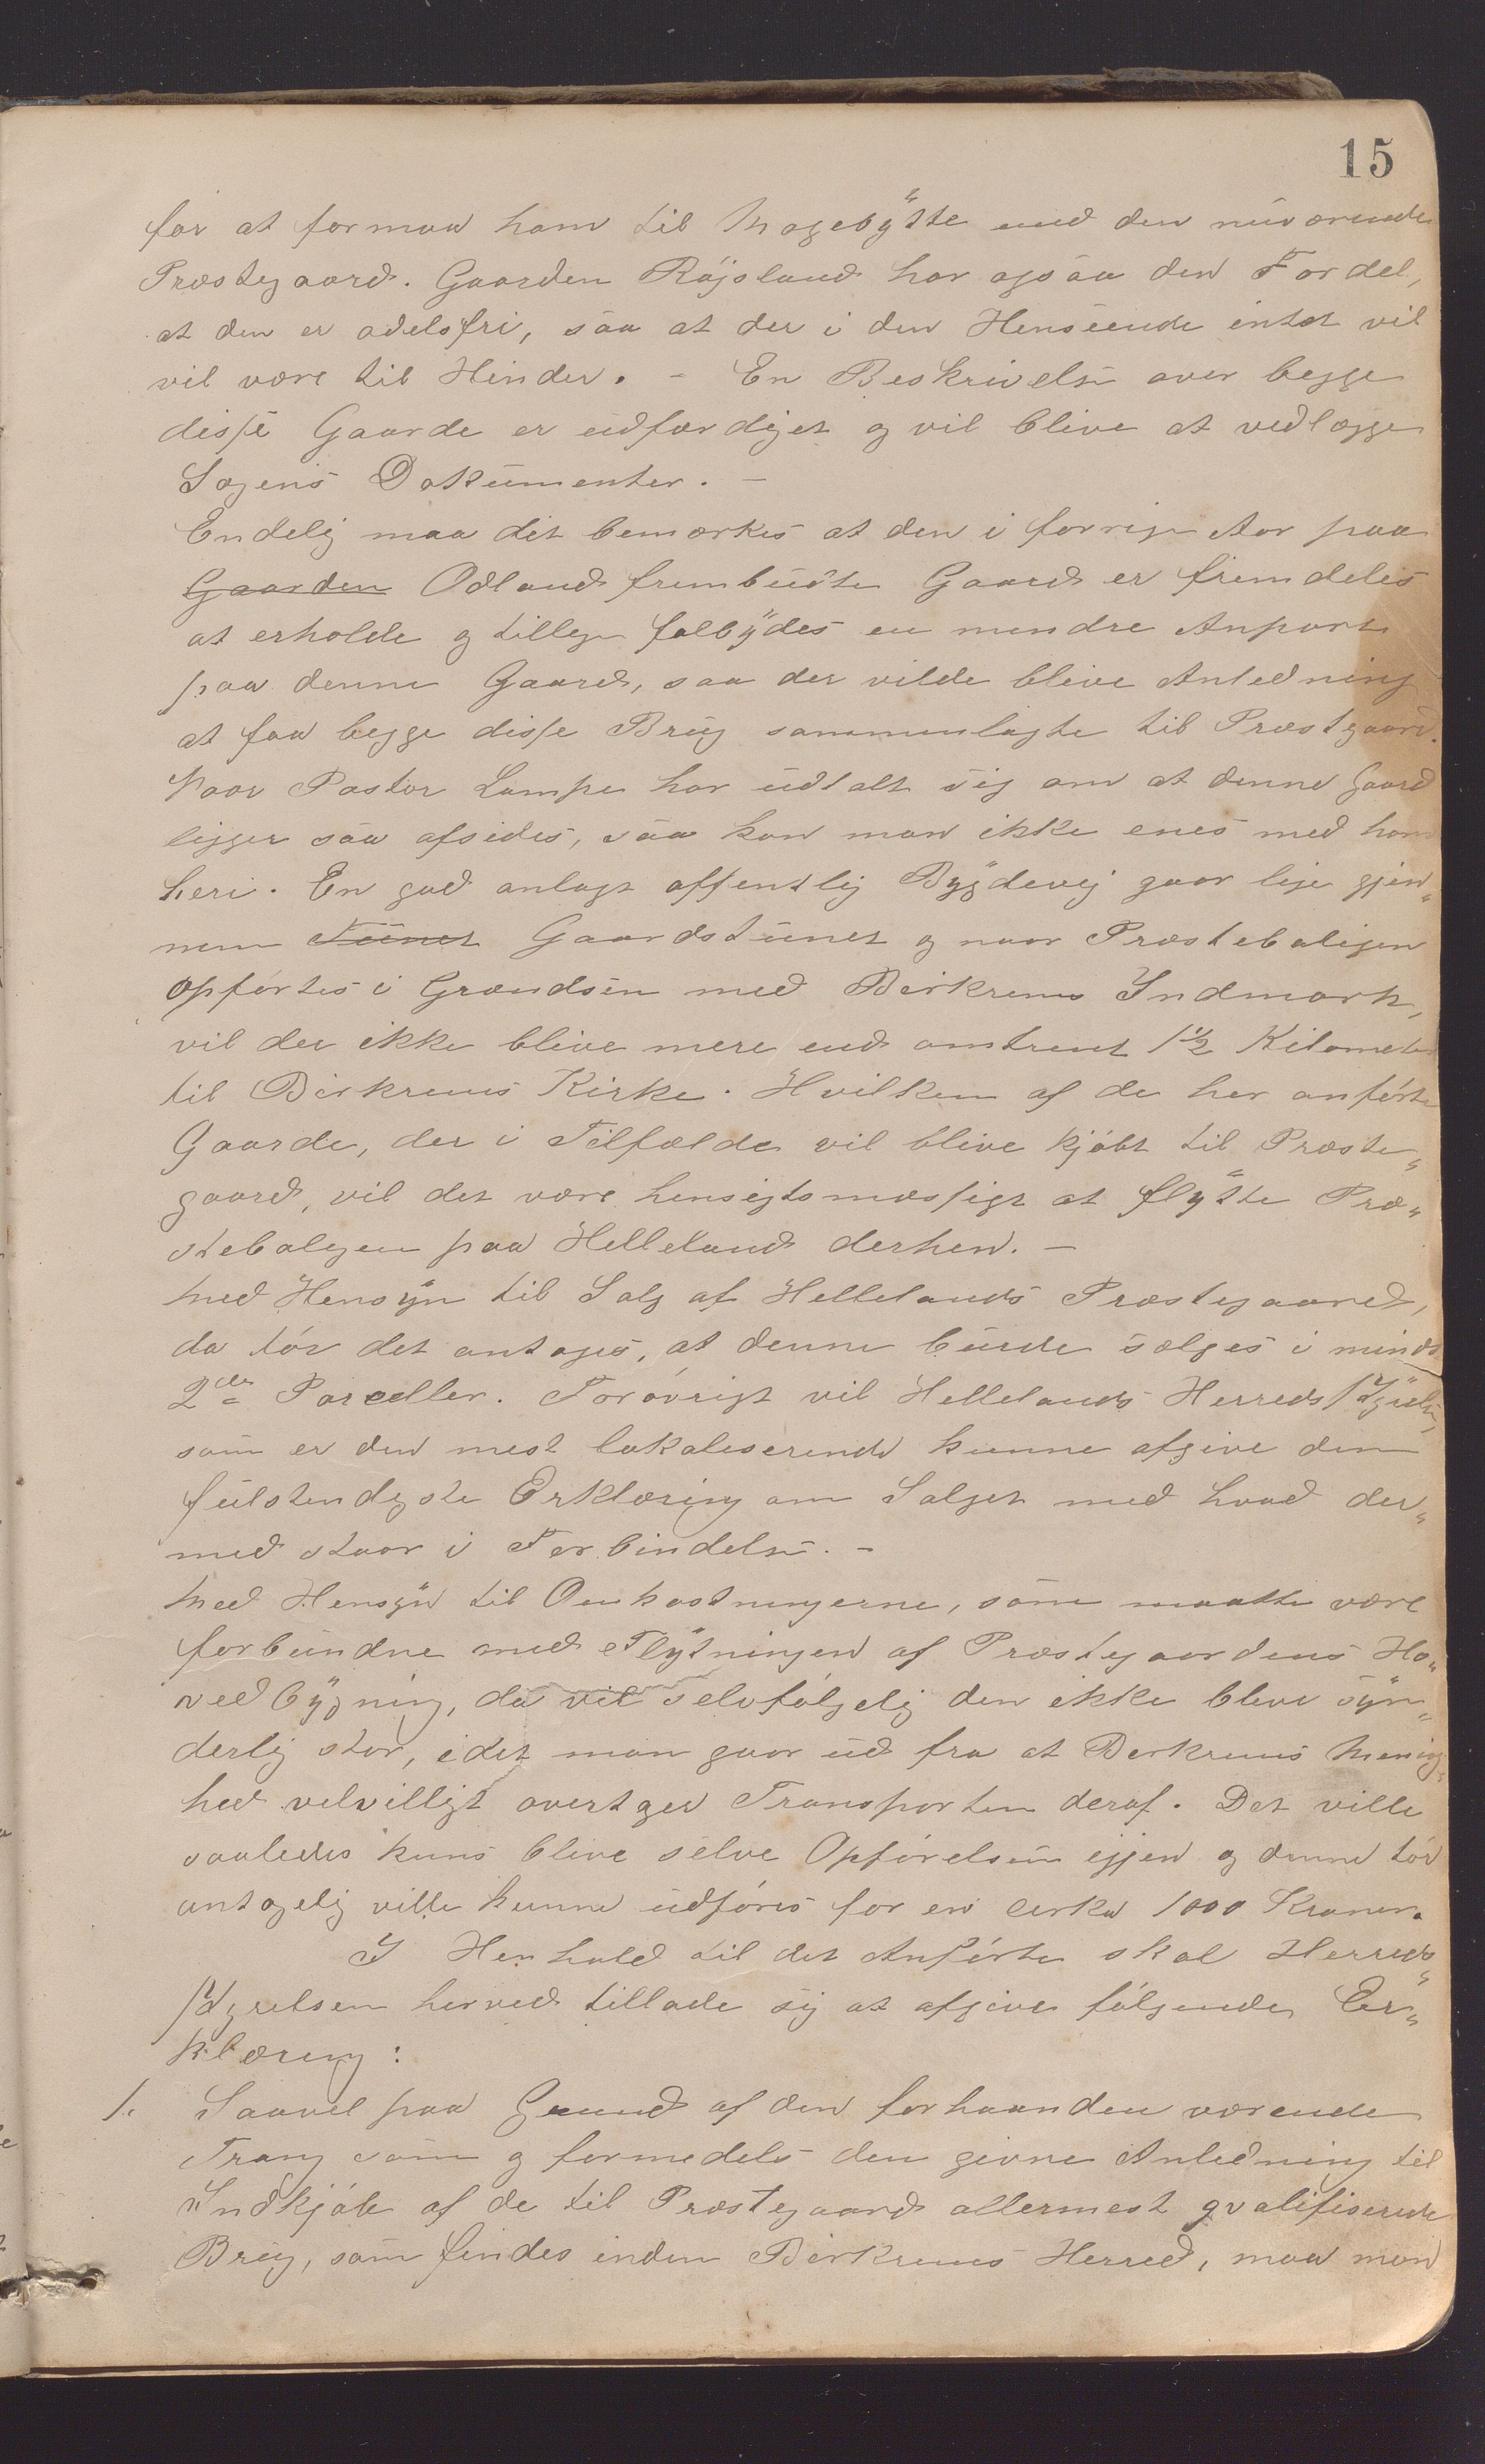 15
for at formaa ham til Magebytte med den nuværende
Præstegaard. Gaarden Røjsland har ogsaa den Fordel,
at den er odelsfri, saa at der i den Henseende intet vil
vil være til Hinder. - En Beskrivelse over begge
disse Gaarde er udfærdiget og vil blive at vedlægge
Sagens Dokumenter. -
Endelig maa det bemærkes at den i forrige Aar paa
Gaarden Ødland frembudte Gaard er fremdeles
at erholde og tillige falbydes en mindre Anpart
paa denne Gaard, saa der vilde blive Anledning
at faa begge disse Brug sammenlagte til Præstgaard.
Naar Pastor Lampe har udtalt sig om at denne Gaard
ligger saa afsides, saa kan man ikke enes med ham
heri. En god anlagt offentlig Bygdevej gaar lige gjen„
nem Tunet Gaardstunet og naar Præsteboligen
opførtes i Grændsen med Birkrems Indmark,
vil der ikke blive mere end omtrent 1½ Kilometer
til Birkrems Kirke. Hvilken af de her anførte
Gaarde, der i Tilfælde vil blive kjøbt til Præste„
gaard, vil det være hensigtsmæssigt at flytte Præ„
steboligen paa Helleland derhen. -
Med Hensyn til Salg af Hellelands Præstegaard,
da tør det antages, at denne burde sælges i mindst
2de Parceller. Forøvrigt vil Hellelands Herredsstyrelse,
som er den mest lokaliserende kunne afgive den
fulstendigste Erklæring om Salget med hvad der„
med staar i Forbindelse. -
Med Hensyn til Omkostningerne, som maatte være
forbundne med Flytningen af Præstegaardens Ho„
vedbygning, da vil selvfølgelig den ikke blive syn„
derlig stor, idet man gaar ud fra at Berkrems Menig„
hed velvilligt overtager Transporten deraf. Det ville
saaledes kuns blive selve Opførelsen igjen og denne tør
antagelig ville kunne udføres for en cirka 1000 Kroner.
I Henhold til det Anførte skal Herreds„
styrelsen herved tillade sig at afgive følgende Er„
klæring:
1. Saavel paa Grund af den forhaanden værende
Trang som og formedels den givne Anledning til
Indkjøb af de til Præstegaard allermest qvalifiserede
Brug, som findes inden Birkrems Herred, maa man